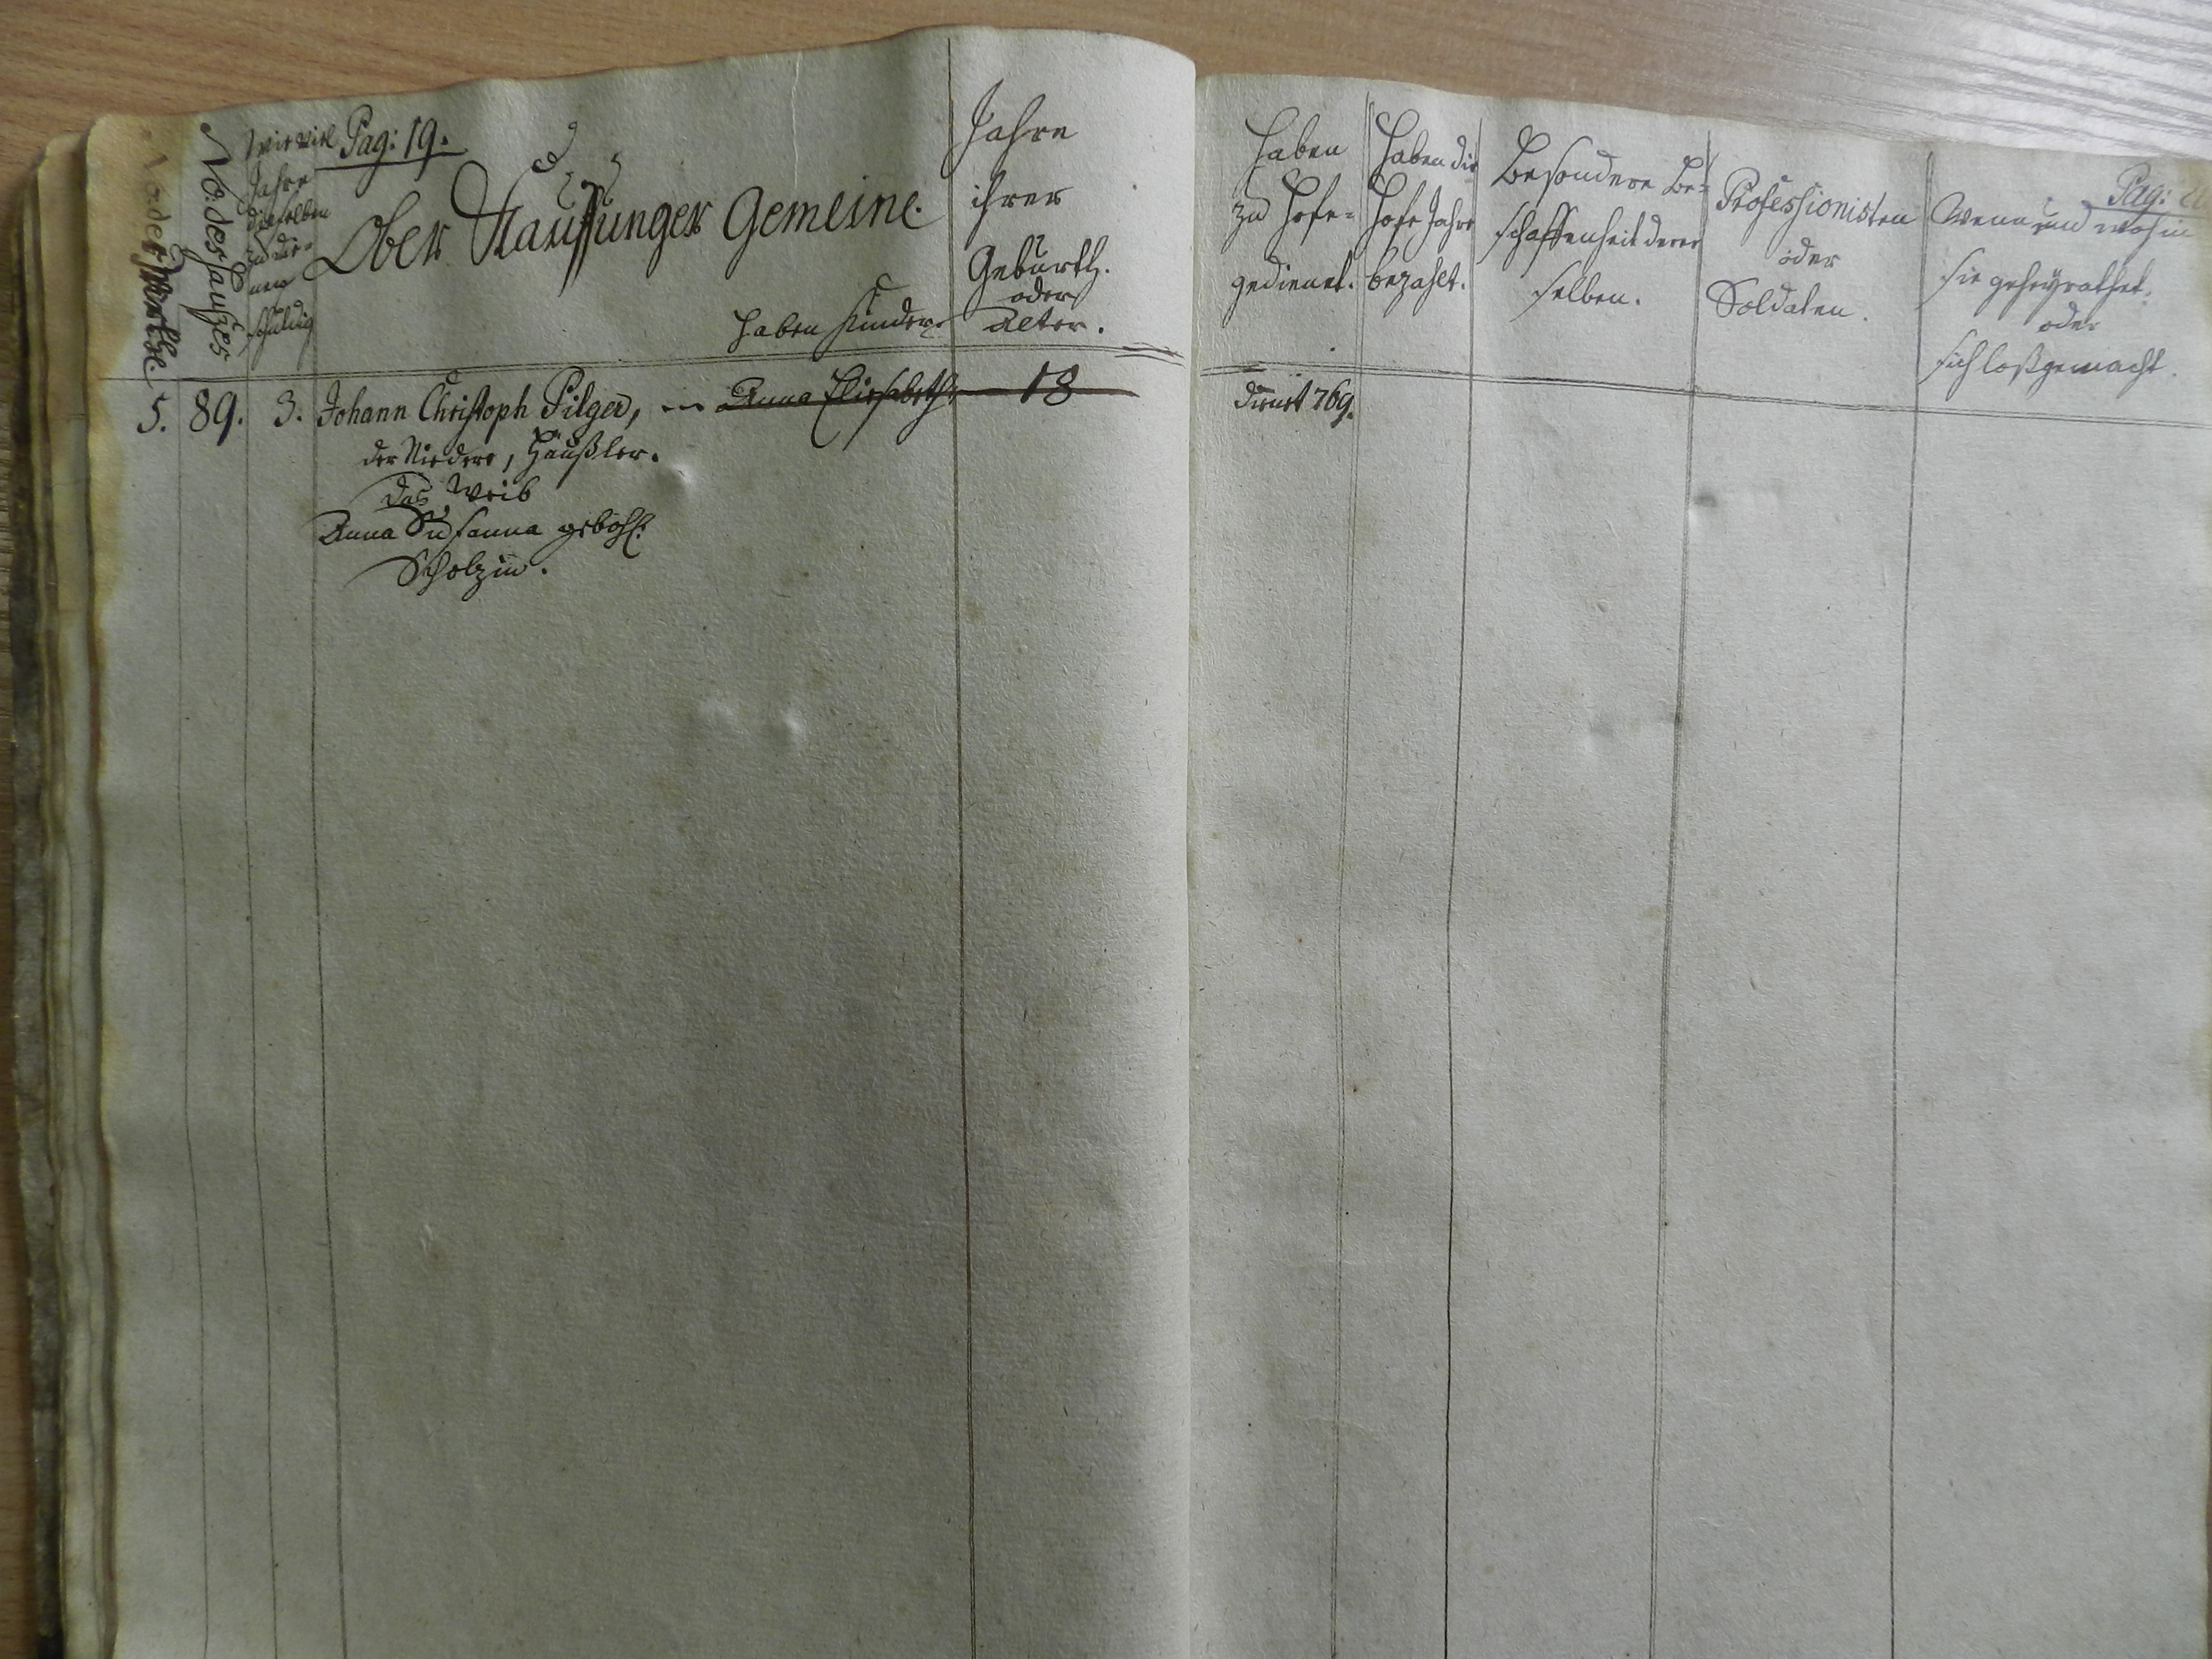 No: der Wirthe.
No: des Hauses
Wie viel
Jahre
dieselben
zu die-
nen
schuldig
Pag: 19.
Ober Kauffunger Gemeine.
haben Kinder
Jahre
ihrer
Geburth.
oder
Alter.
haben
zu Hofe-
gedienet.
haben die
Hofe Jahre
bezahlt.
Besondere Be-
schaffenheit derer
selben.
Professionisten
oder
Soldaten.
Pag:
Wenn und wohin
sie geheyrathet.
oder
sich loßgemacht.
5. 89. 3. Johann Christoph Pilger, Anna Elisabeth 18 dienet 769.
der Niedere, Häußler.
das Weib
Anna Susanna gebohr.
Scholzin.